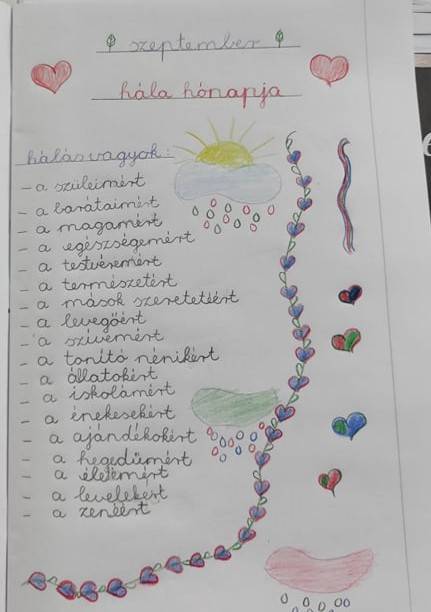 szeptember
hála hónapja
hálás vagyok:
- a szüleimért
- a barátaimért
- a magamért
- a egészségemért
- a testvéremért
- a természetért
- a mások szeretetéért
- a levegőért
- a szívemért
- a tanító nénikért
- a állatokért
- a iskolámért
- a énekesekért
- a ajándékokért
- a hegedűmért
- a életemért
- a levelekért
- a zenéért